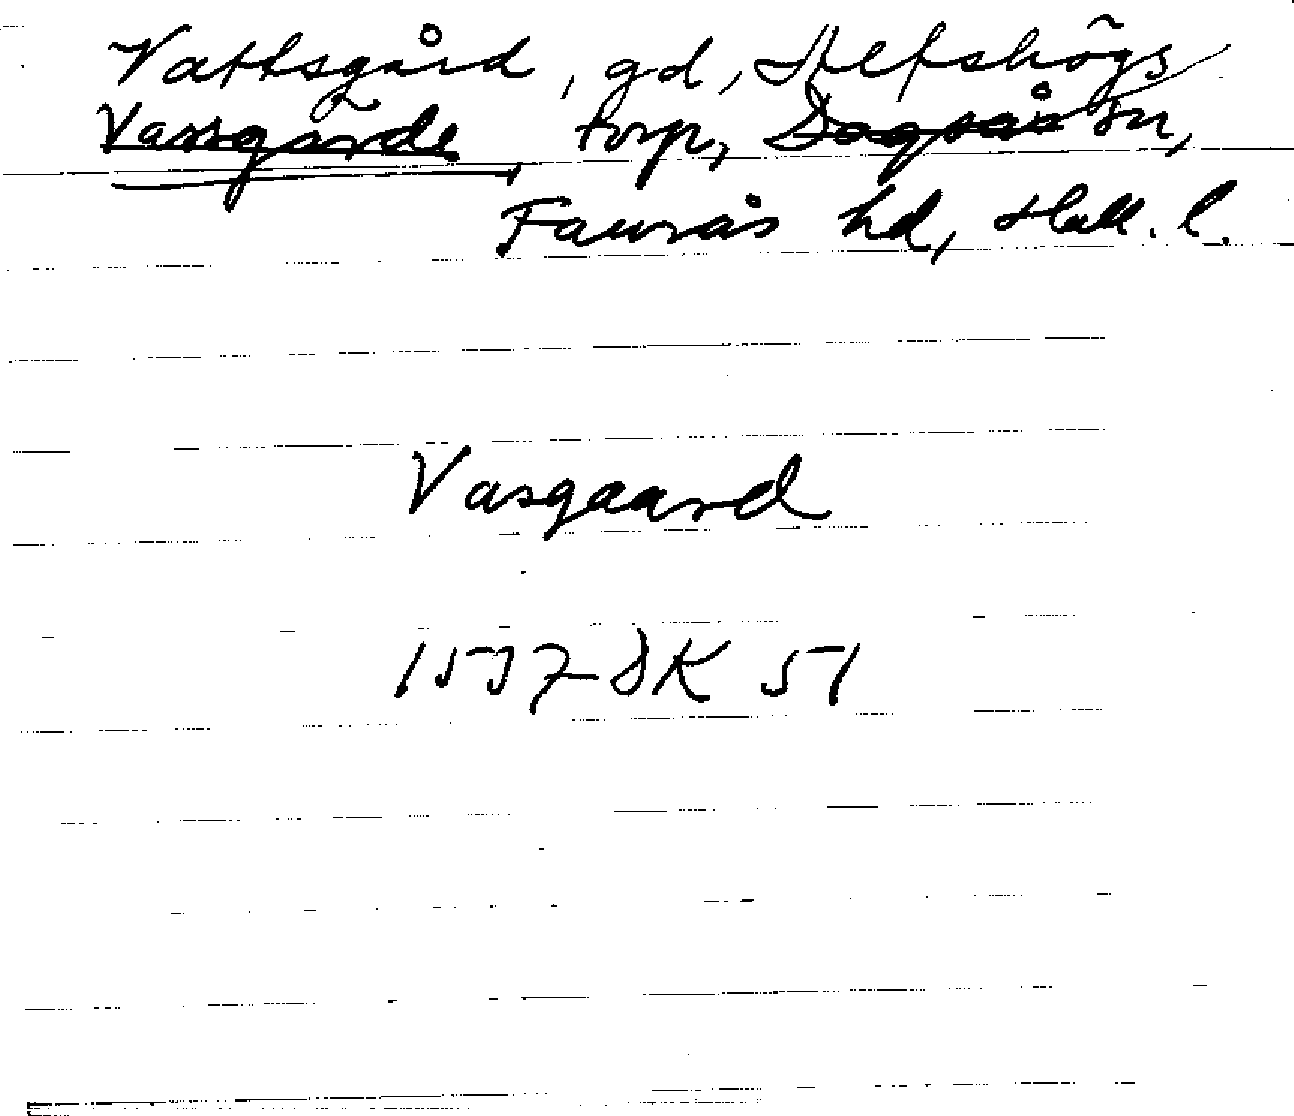 Vattsgård, gd, Alfshögs
Vassgårde, torp, Dagsås sn,
Faurås hd, Hall. l.
Vasgaard
1537 DK 51